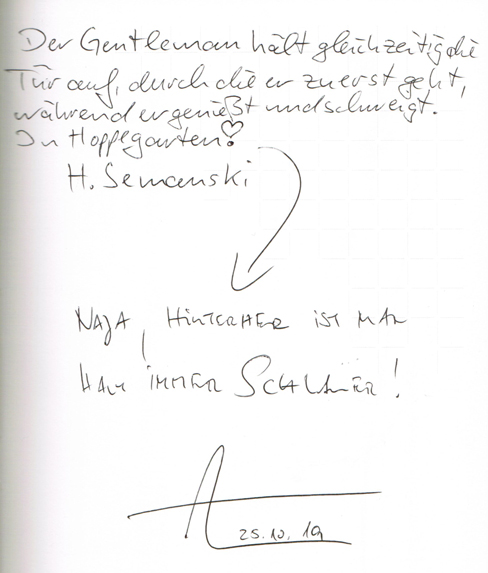 Der Gentleman hält gleichzeitig die
Tür auf, durch die er zuerst geht,
während er genießt und schweigt.
In Hoppegarten!
H. Semanski
NAJA, HINTERHER IST MAN
HALT IMMER SCHLAUER!
25.10.19